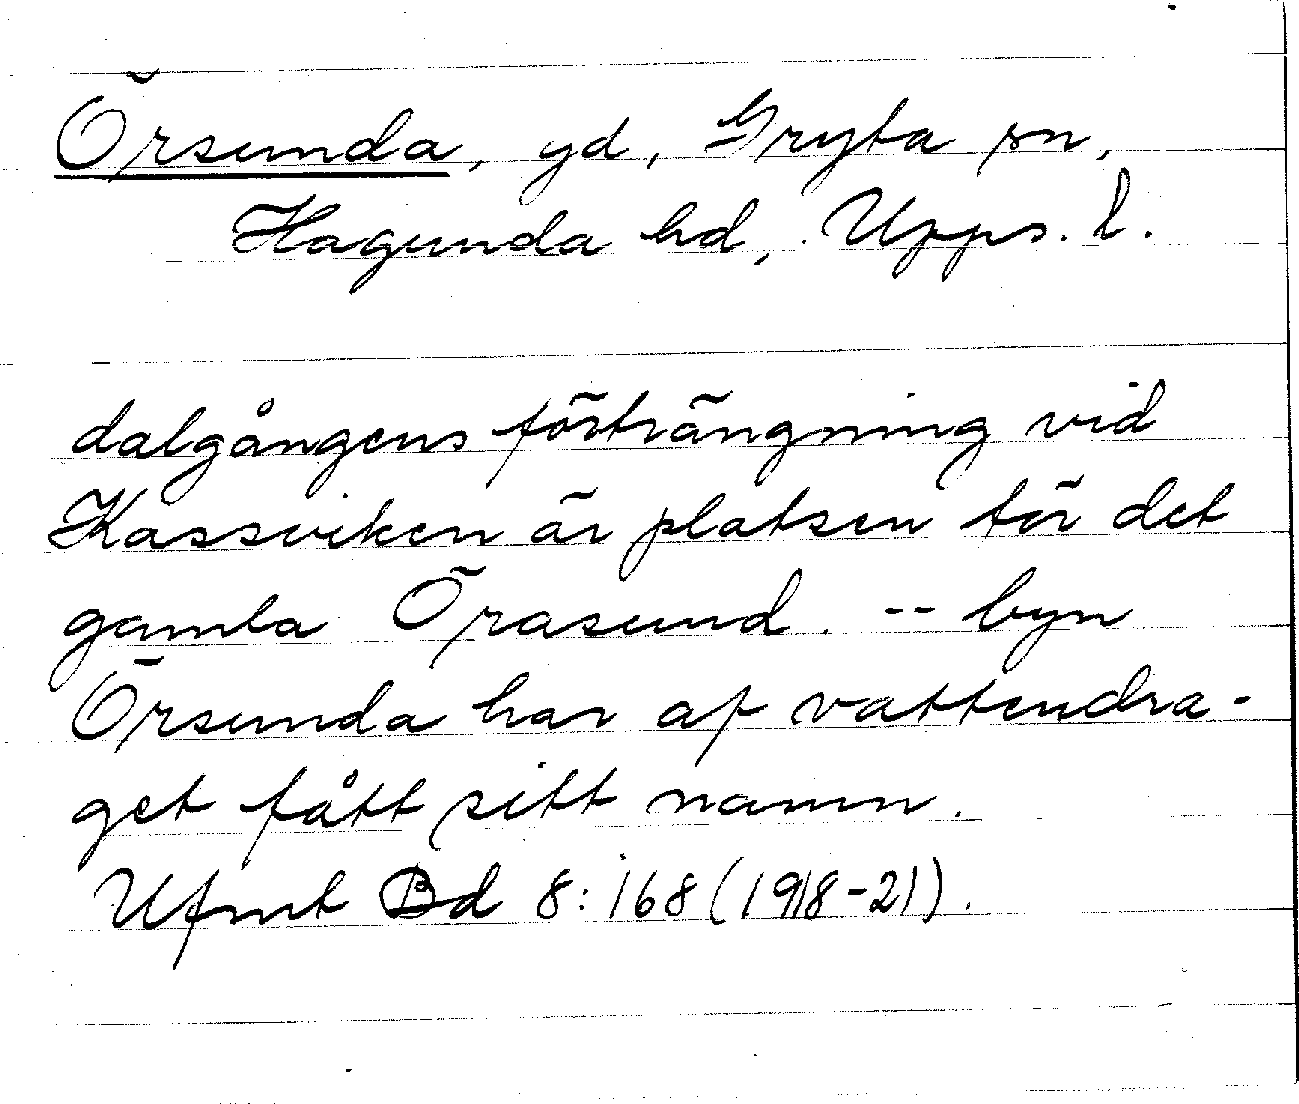 Örsunda, gd, Gryta sn,
Hagunda hd, Upps. l.
dalgångens förträngning vid
Kassviken är platsen för det
gamla Örasund. -- byn
Örsunda har af vattendra-
get fått sitt namn.
Ufmt Bd 8:168 (1918-21).